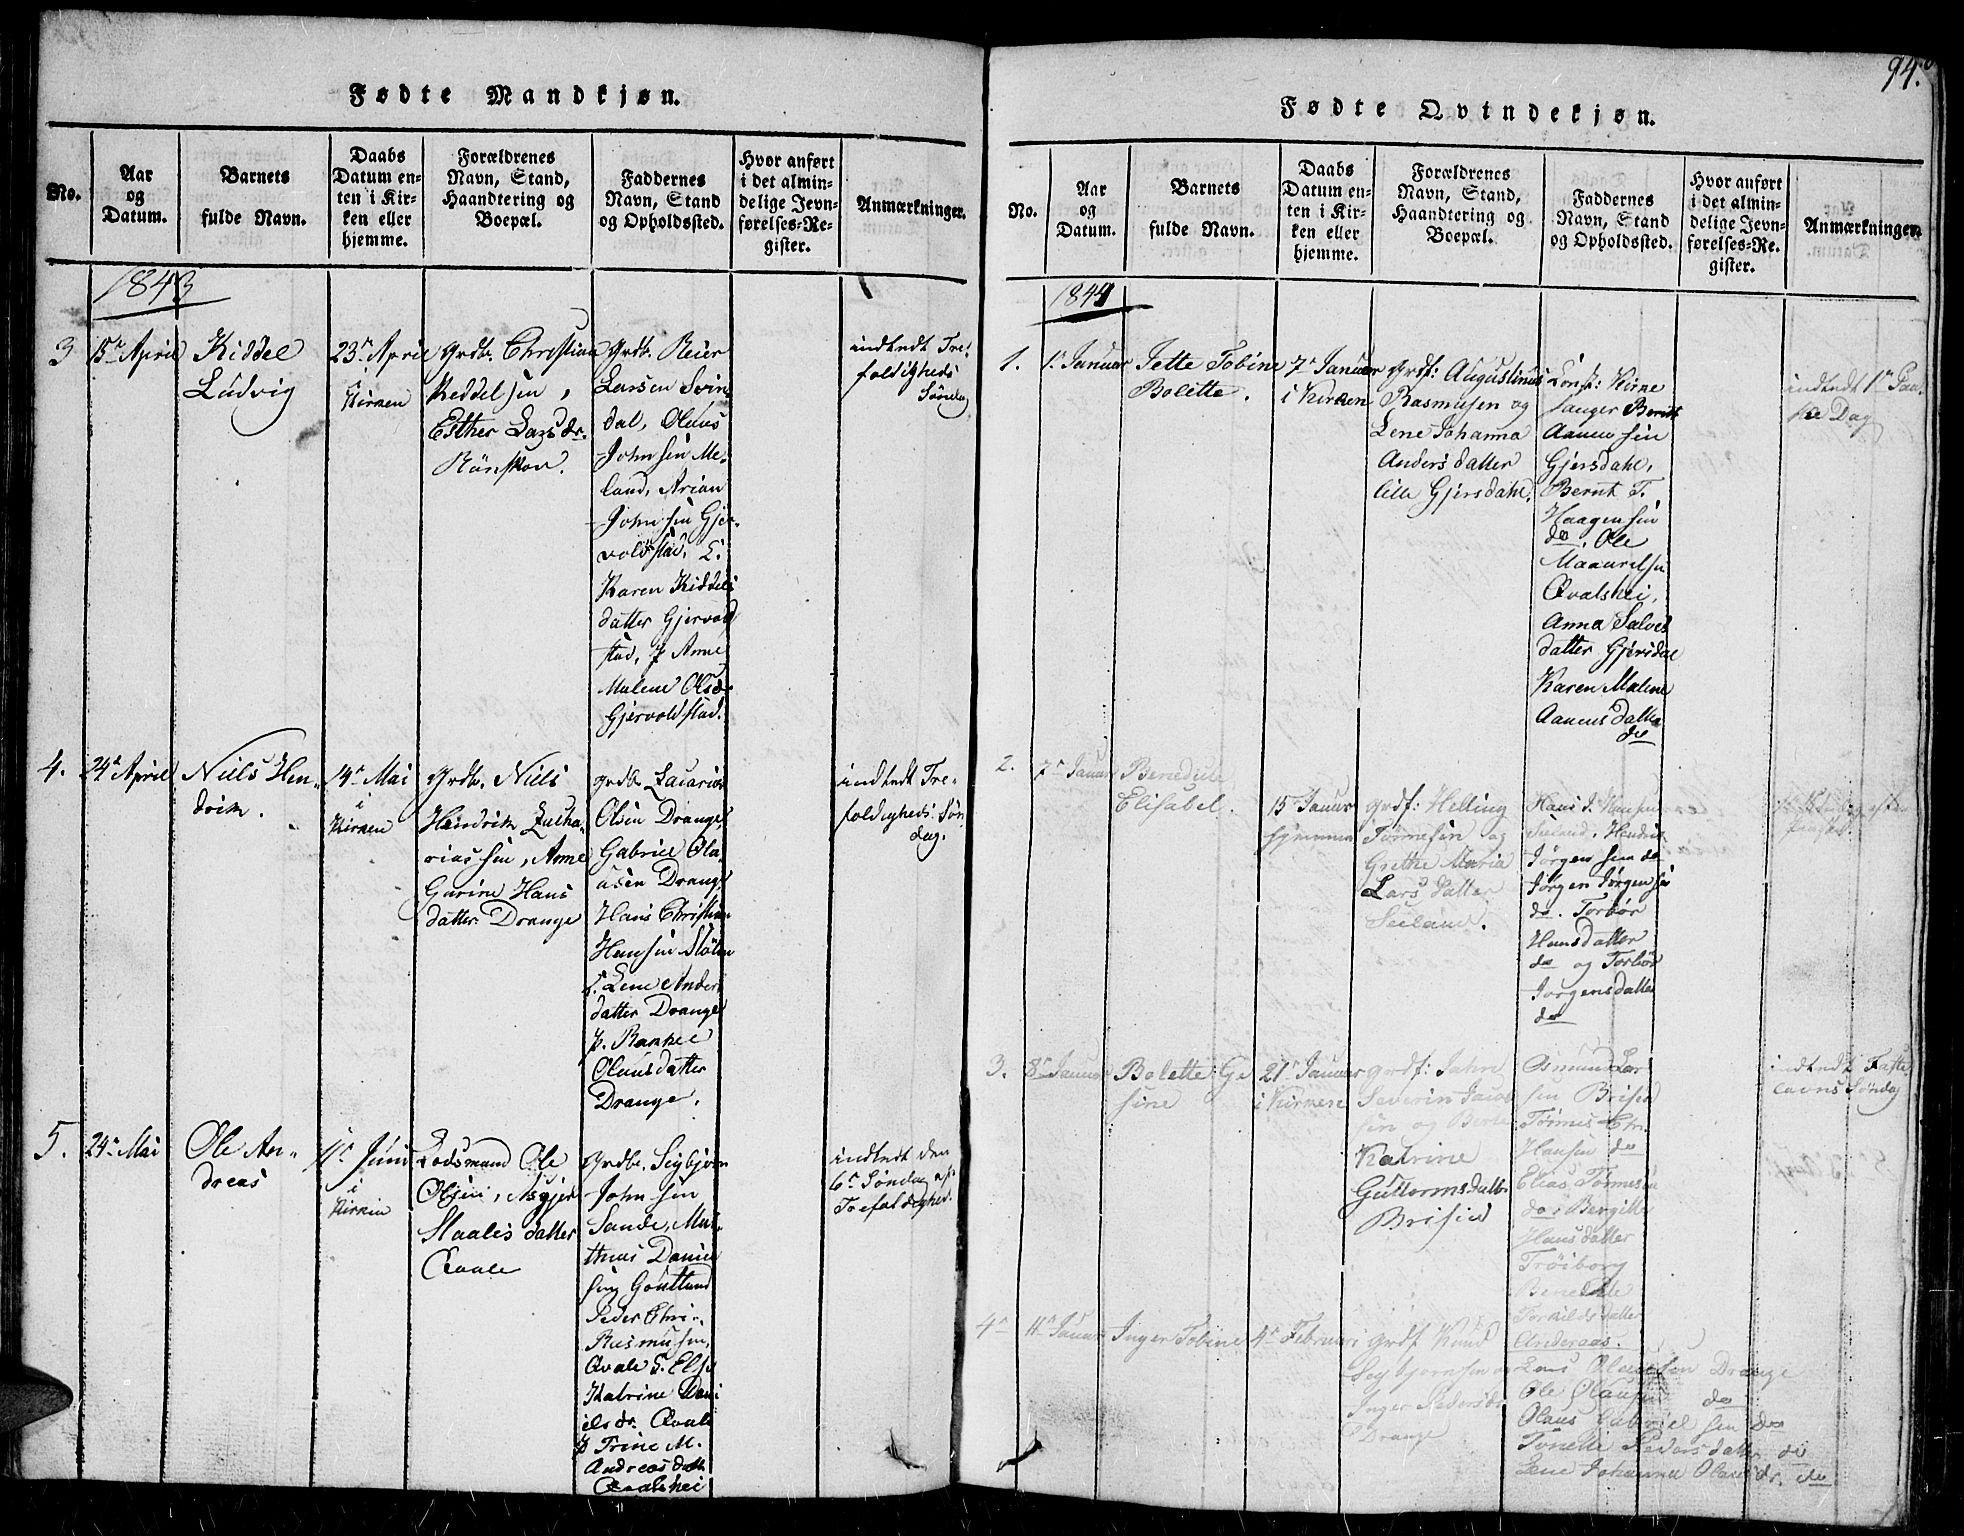 94.
Fødte Mandkjøn.
No.
Aar
og
Datum.
Barnets
fulde Navn.
Daabs
Datum en-
ten i Kir-
ken eller
hjemme.
Forældrenes
Navn, Stand,
Haandtering og
Boepæl.
Faddernes
Navn, Stand
og Opholdssted.
Hvor anført
i det almin-
delige Jevn-
førelses-Re-
gister.
Anmærkninger.
1843
3
15de April
Kiddel
Ludvig
23de April
i
Kirken
Grdb. Christian
Keddelsen,
Esther Larsdr.
Rönskov.
Grdb. Reier
Larsen Svin-
dal, Olaus
Johnsen Me-
land, Arian
Johnsen Gjer-
voldstad,
Karen Kiddels
datter Gjervold
stad, P Anne
Malene Olsdr
Gjervoldstad.
indledt Tre-
foldigheds
Søndag
4.
24de April
Niels Hen-
drik.
14de Mai
i
Kirken
Grdb. Niels
Hendrik Zacha-
riassen, Anne
Gurine Hans
datter Drange
Grdb Zacarias
Olsen Drange,
Gabriel Ola-
usen Drange,
Hans Christian
Hansen Slöten
Lene Anders
datter Drange
p. Rankel
Olausdatter
Drange.
indledt Tre-
foldigheds Søn
dag.
5.
24de Mai
Ole An-
dreas
11te Juni
i
Kirken
Lodsmand Ole
Olsen, Asgjer
Staales datter
Qvale
Grdb. Seybjorn
Johnsen
Sande, Mat-
thias Daniel
sen Goutlund
Peder Chri-
Rasmussen,
Qvale G. Else
Katrine Dani
els dr. Qvale
p Trine M.
Andreas datt
Qvalshei
indledt den
6te Søndag eft
Trefoldighed.
Fødte Qvindekjøn.
No.
Aar
og
Datum.
Barnets
fulde Navn.
Daabs
Datum en-
ten i Kir-
ken eller
hjemme.
Forældrenes
Navn, Stand,
Haandtering og
Boepæl.
Faddernes
Navn, Stand
og Opholdssted.
Hvor anført
i det almin-
delige Jevn-
førelses-Re-
gister.
Anmærkninger.
1844
1.
1te Januar
Jette Tobine
Bolette.
7de Januar
i Kirken
Grdf: Augustinus
Rasmusen og
Lene Johanna
Anders datter
lille Gjersdahl.
Const: Kirke
sanger Berent
Aanensen
Gjersdahl,
Bernt T.
Haagensen
do, Ole
Maaurelsen
Qvalshei,
Anna Salves
datter Gjersdal
Karen Malene
Aanensdatter
do
indledt 1te Paa-
ske Dag
2.
7de Januar
Benedicte
Elisabet.
15de Januar
hjemme
Grdf: Helling
Tørnesen og
Grethe Maria
Lars datter
Seeland.
Hans J. Hansen
Seeland, Hendrik
Jørgensen do
Jørgen Jørgensen
do. Torbør
Hansdatter
do og Torbør
Jorgensdatter
do
3.
8de Januar
Bolette Ge
sine
21de Januar
i Kirken
Grdf: Jahn
Severin Jacob
sen og Berte
Katrine
Guttormsdatter
Briseid
Osmund Lar
sen Briseid
Tørnes Chr.
Hansen do
Elias Tørnesen
do, Bergitte
Hansdatter
Tröiborg
Benedicte
Torkildsdatter
Anderaas.
indledt Faste
lavns Søndag
4de
11te Januar
Inger Tobine
4de Februar
Grdf Knud
Seybjornsen og
Inger Pedersdr
Drange
Lars Olaussen Drange
Ole Olausen do
Olaus Gabrielsen do
Tonette Pedersdatter do
Lene Johanna Olausdr. do